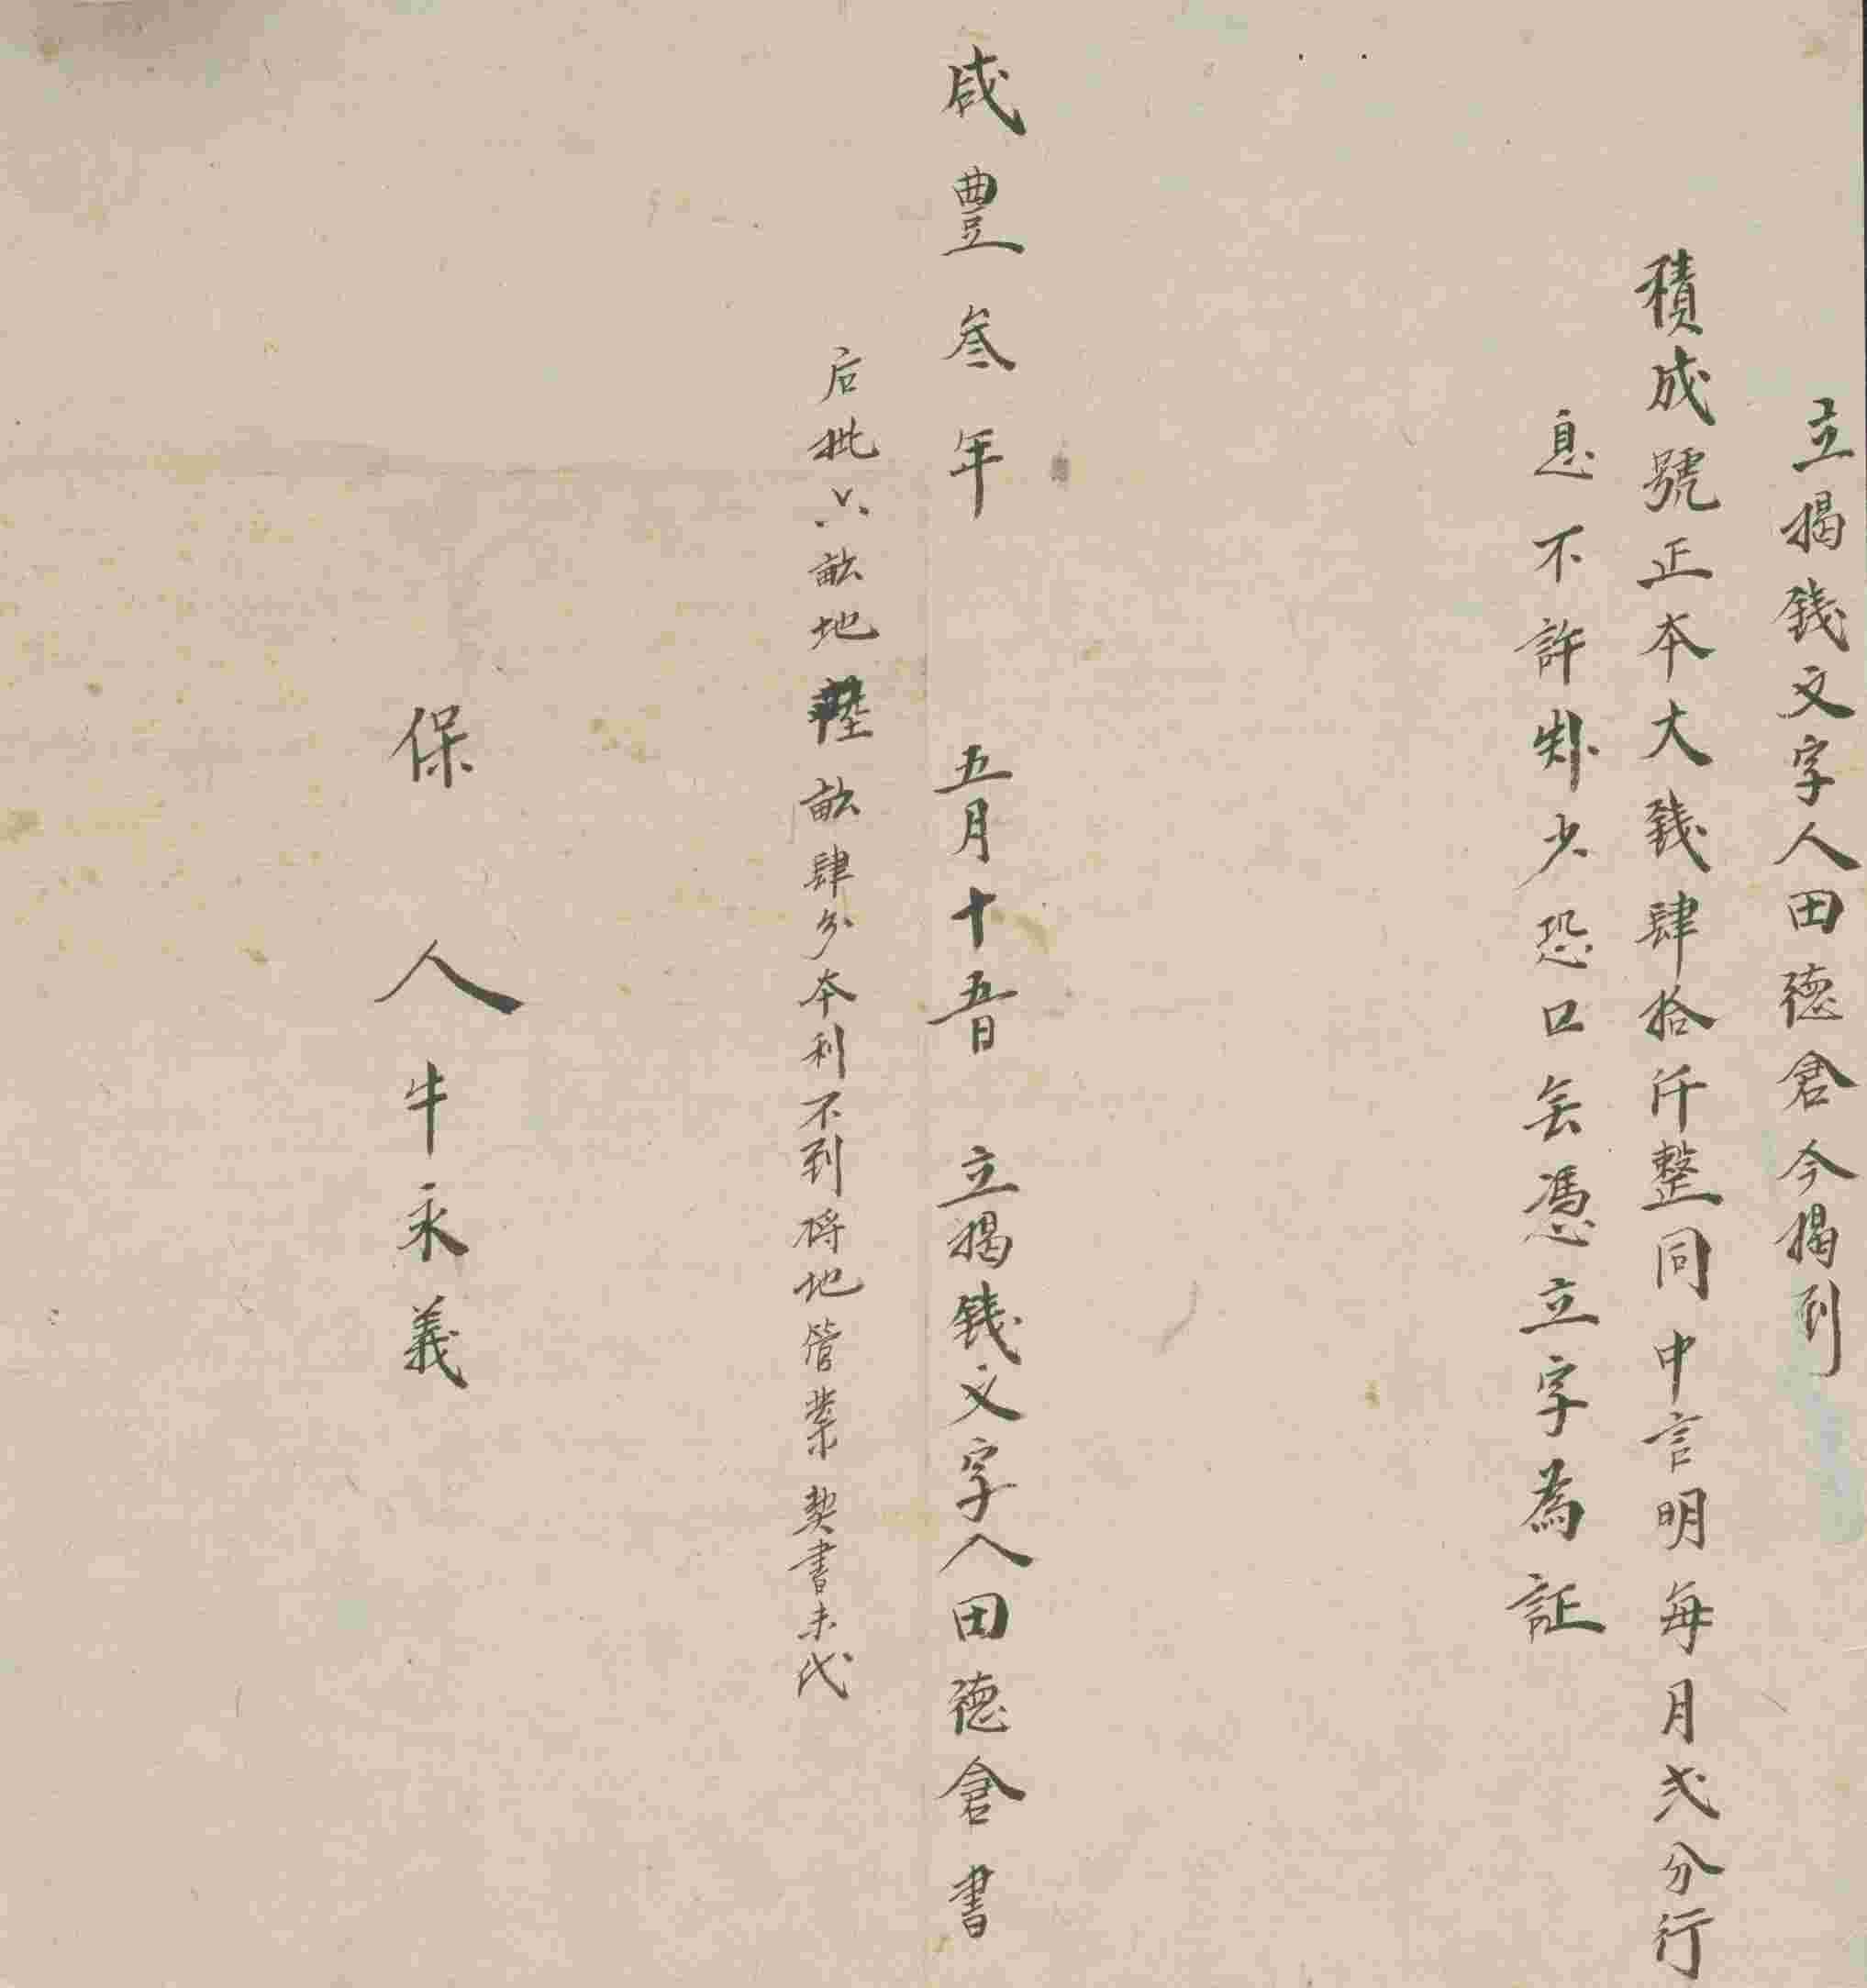 立揭錢文字人田德倉今揭到
積成號正本大錢肆拾仟整同中言明每月弍分行
息不許短少恐口無憑立字為証
咸豊叁年 五月十五日 立揭錢文字人田德倉書
后批六畝地陸畝肆分本利不到將地管業契書未代
保人牛永義